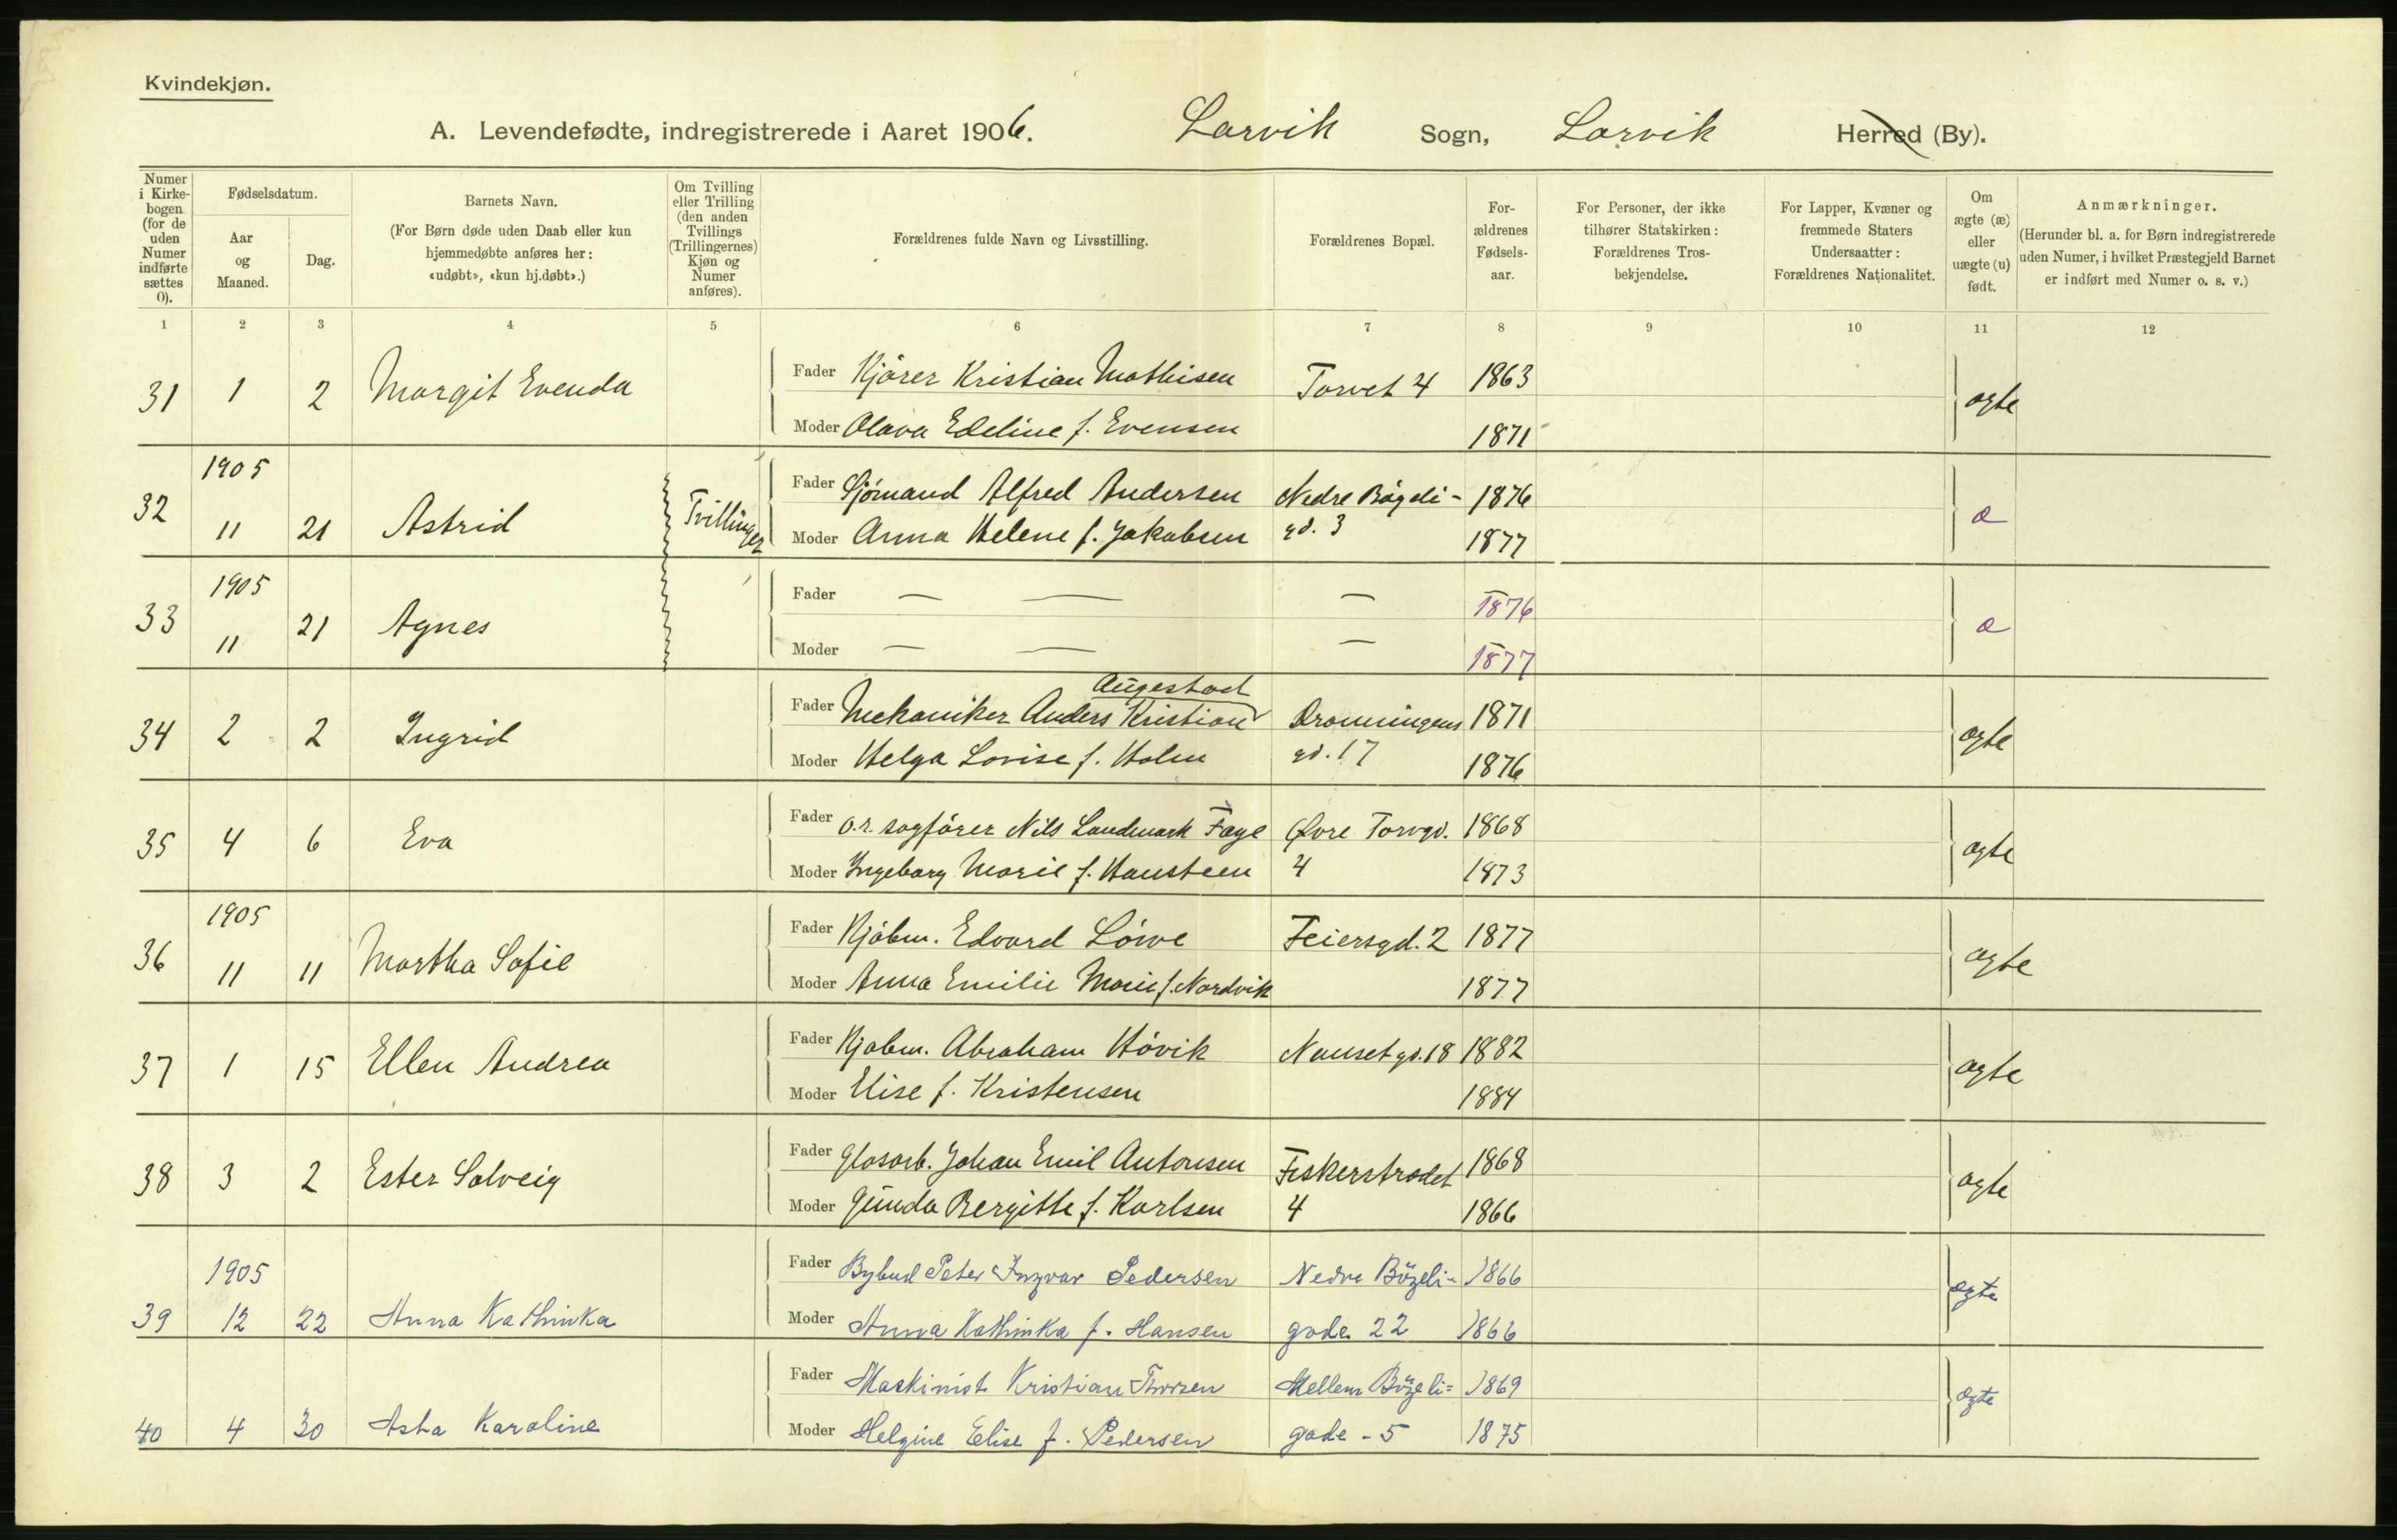 Kvindekjøn.
A. Levendefødte, indregistrerede i Aaret 1906. Larvik Sogn, Larvik Herred (By).
Numer i Kirkebogen (for de uden Numer indførte sættes 0).
Fødselsdatum.
Aar og Maaned.
Dag.
Barnets Navn.
(For Børn døde uden Daab eller kun hjemmedøbte anføres her: «udøbt», «kun hj.døbt».)
Om Tvilling eller Trilling (den anden Tvillings (Trillingernes) Kjøn og Numer anføres).
Forældrenes fulde Navn og Livsstilling.
Forældrenes Bopæl.
Forældrenes Fødselsaar.
For Personer, der ikke tilhører Statskirken: Forældrenes Trosbekjendelse.
For Lapper, Kvæner og fremmede Staters Undersaatter: Forældrenes Nationalitet.
Om ægte (æ) eller uægte (u) født.
Anmærkninger.
(Herunder bl. a. for Børn indregistrerede uden Numer, i hvilket Præstegjeld Barnet er indført med Numer o. s. v.)
1 2 3 4 5 6 7 8 9 10 11 12
31 1 2 Margit Evenda Fader Kjører Kristian Mathisen Torvet 4 1863 ægte
Moder Olava Edeline f. Evensen 1871
1905
32 11 21 Astrid Tvillinger Fader Sjömand Alfred Andersen Nedre Bögeli- 1876 æ
Moder Anna Helene f. Jakobsen gd. 3 1877
1905
33 11 21 Agnes Fader — — — 1876 æ
Moder — — — 1877
Augestad
34 2 2 Ingrid Fader Mekaniker Anders Kristian Dronningens 1871 ægte
Moder Helga Lovise f. Holm gd. 17 1876
35 4 6 Eva Fader o.r. sagfører Nils Landmark Faye Øvre Torvgd. 1868 ægte
Moder Ingeborg Marie f. Hansteen 4 1873
1905
36 11 11 Martha Sofie Fader Kjöbm. Edvard Löwe Feiersgd. 2 1877 ægte
Moder Anna Emilie Marie f. Nordvik 1877
37 1 15 Ellen Andrea Fader Kjøbm. Abraham Hövik Nansetgd. 18 1882 ægte
Moder Elise f. Kristensen 1884
38 3 2 Ester Solveig Fader Glasarb. Johan Emil Antonsen Fiskerstrædet 1868 ægte
Moder Gunda Bergitte f. Karlsen 4 1866
1905
39 12 22 Anna Kathinka Fader Bybud Peter Ingvar Pedersen Nedre Bögeli- 1866 ægte
Moder Anna Kathinka f. Hansen gade 22 1866
40 4 30 Asta Karoline Fader Maskinist Kristian Thorsen Mellem Bögeli= 1869 ægte
Moder Helgine Elise f. Pedersen gade - 5 1875